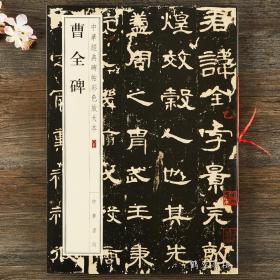 君諱全字景完敦
煌效穀人也其先
蓋周之冑武王秉
中華經典碑帖彩色放大本
曹全碑
中華書局